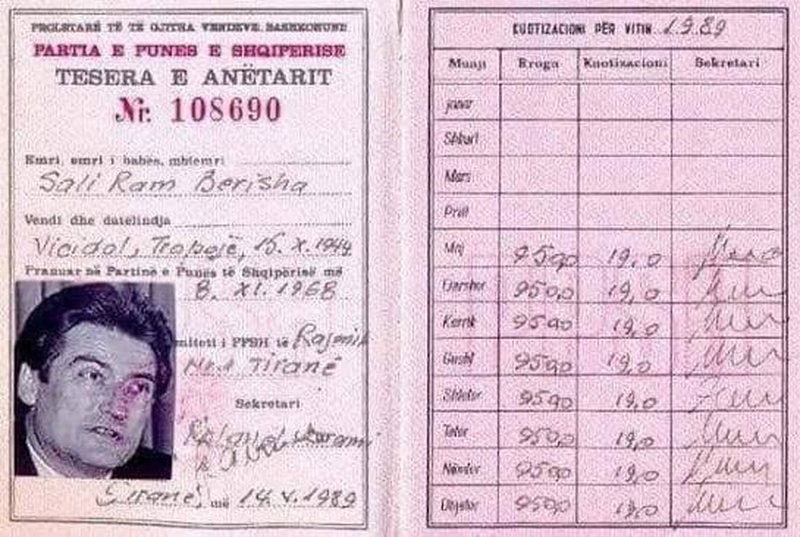 PROLETARË TË TË GJITHA VENDEVE, BASHKOHUNI!
PARTIA E PUNES E SHQIPERISE
TESERA E ANËTARIT
Nr. 108690
Emri, emri i babës, mbiemri
Sali Ram Berisha
Vendi dhe datëlindja
Vicidol, Tropojë, 15.X.1944
Pranuar në Partinë e Punës të Shqipërisë më
8. XI. 1968
miteti i PPSH të Rajonit
Nr.1 Tiranë
Sekretari
Tiranë, më 14.V.1989
KUOTIZACIONI PËR VITIN 1989
Muaji Rroga Kuotizacioni Sekretari
Janar
Shkurt
Mars
Prill
Maj 950,0 19,0
Qershor 950,0 19,0
Korrik 950,0 19,0
Gusht 950,0 19,0
Shtator 950,0 19,0
Tetor 950,0 19,0
Nëntor 950,0 19,0
Dhjetor 950,0 19,0